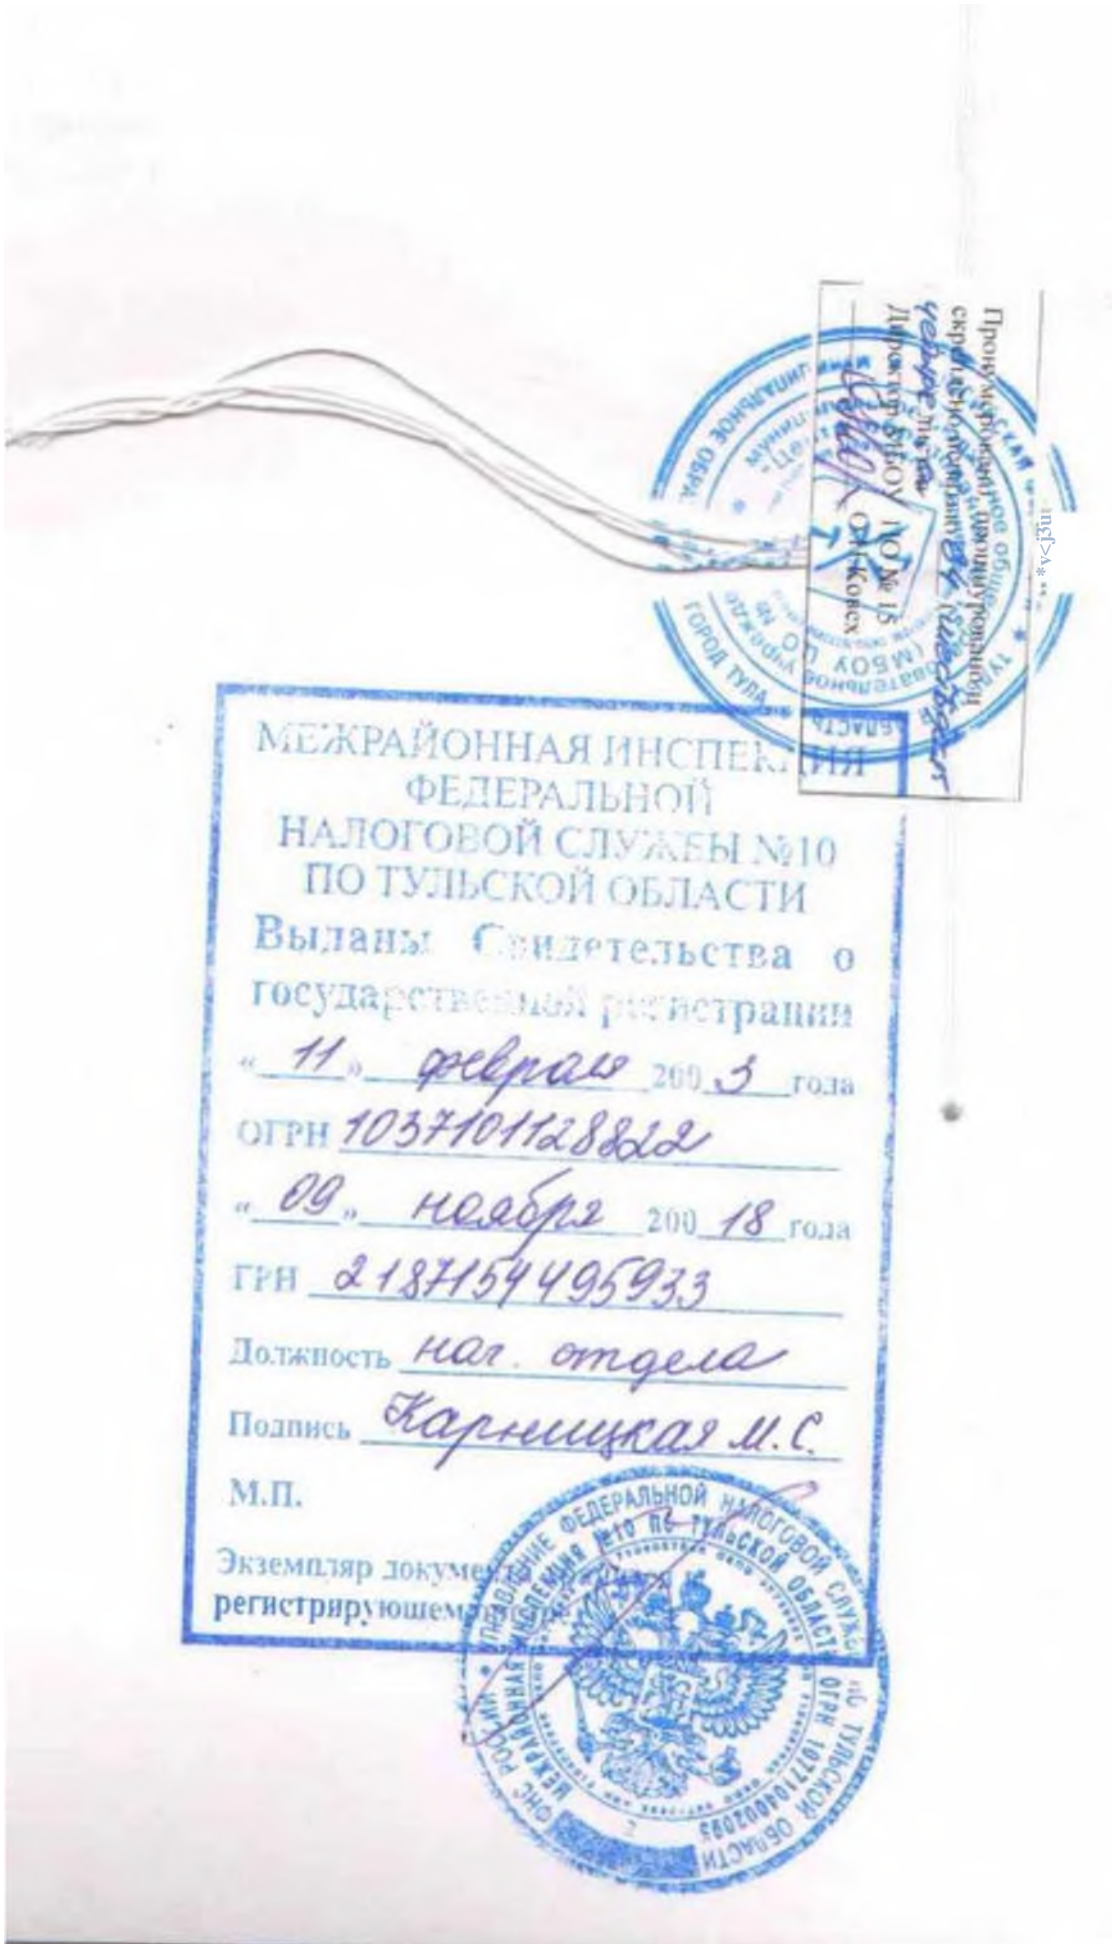 Пронумеровано, прошнуровано и
скреплено печатью 84 /
четыре листа
Директор МБОУ ЦО № 15
О.Н Ковех
ГОРОД ТУЛА
МЕЖРАЙОННАЯ ИНСПЕКЦИЯ
ФЕДЕРАЛЬНОЙ
НАЛОГОВОЙ СЛУЖБЫ №10
ПО ТУЛЬСКОЙ ОБЛАСТИ
Выданы Свидетельства о
государственной регистрации
« 11 » февраля 200 3 года
ОГРН 1037101128822
« 09 » ноября 200 18 года
ГРН 2187154495933
Должность нач. отдела
Подпись Карницкая М.С.
М.П.
Экземпляр документа
регистрирующем
УПРАВЛЕНИЕ ФЕДЕРАЛЬНОЙ НАЛОГОВОЙ СЛУЖБЫ ПО ТУЛЬСКОЙ ОБЛАСТИ
МЕЖРАЙОННАЯ ИНСПЕКЦИЯ №10 ПО ТУЛЬСКОЙ ОБЛАСТИ ОГРН 1077104002095
ФНС РОССИИ